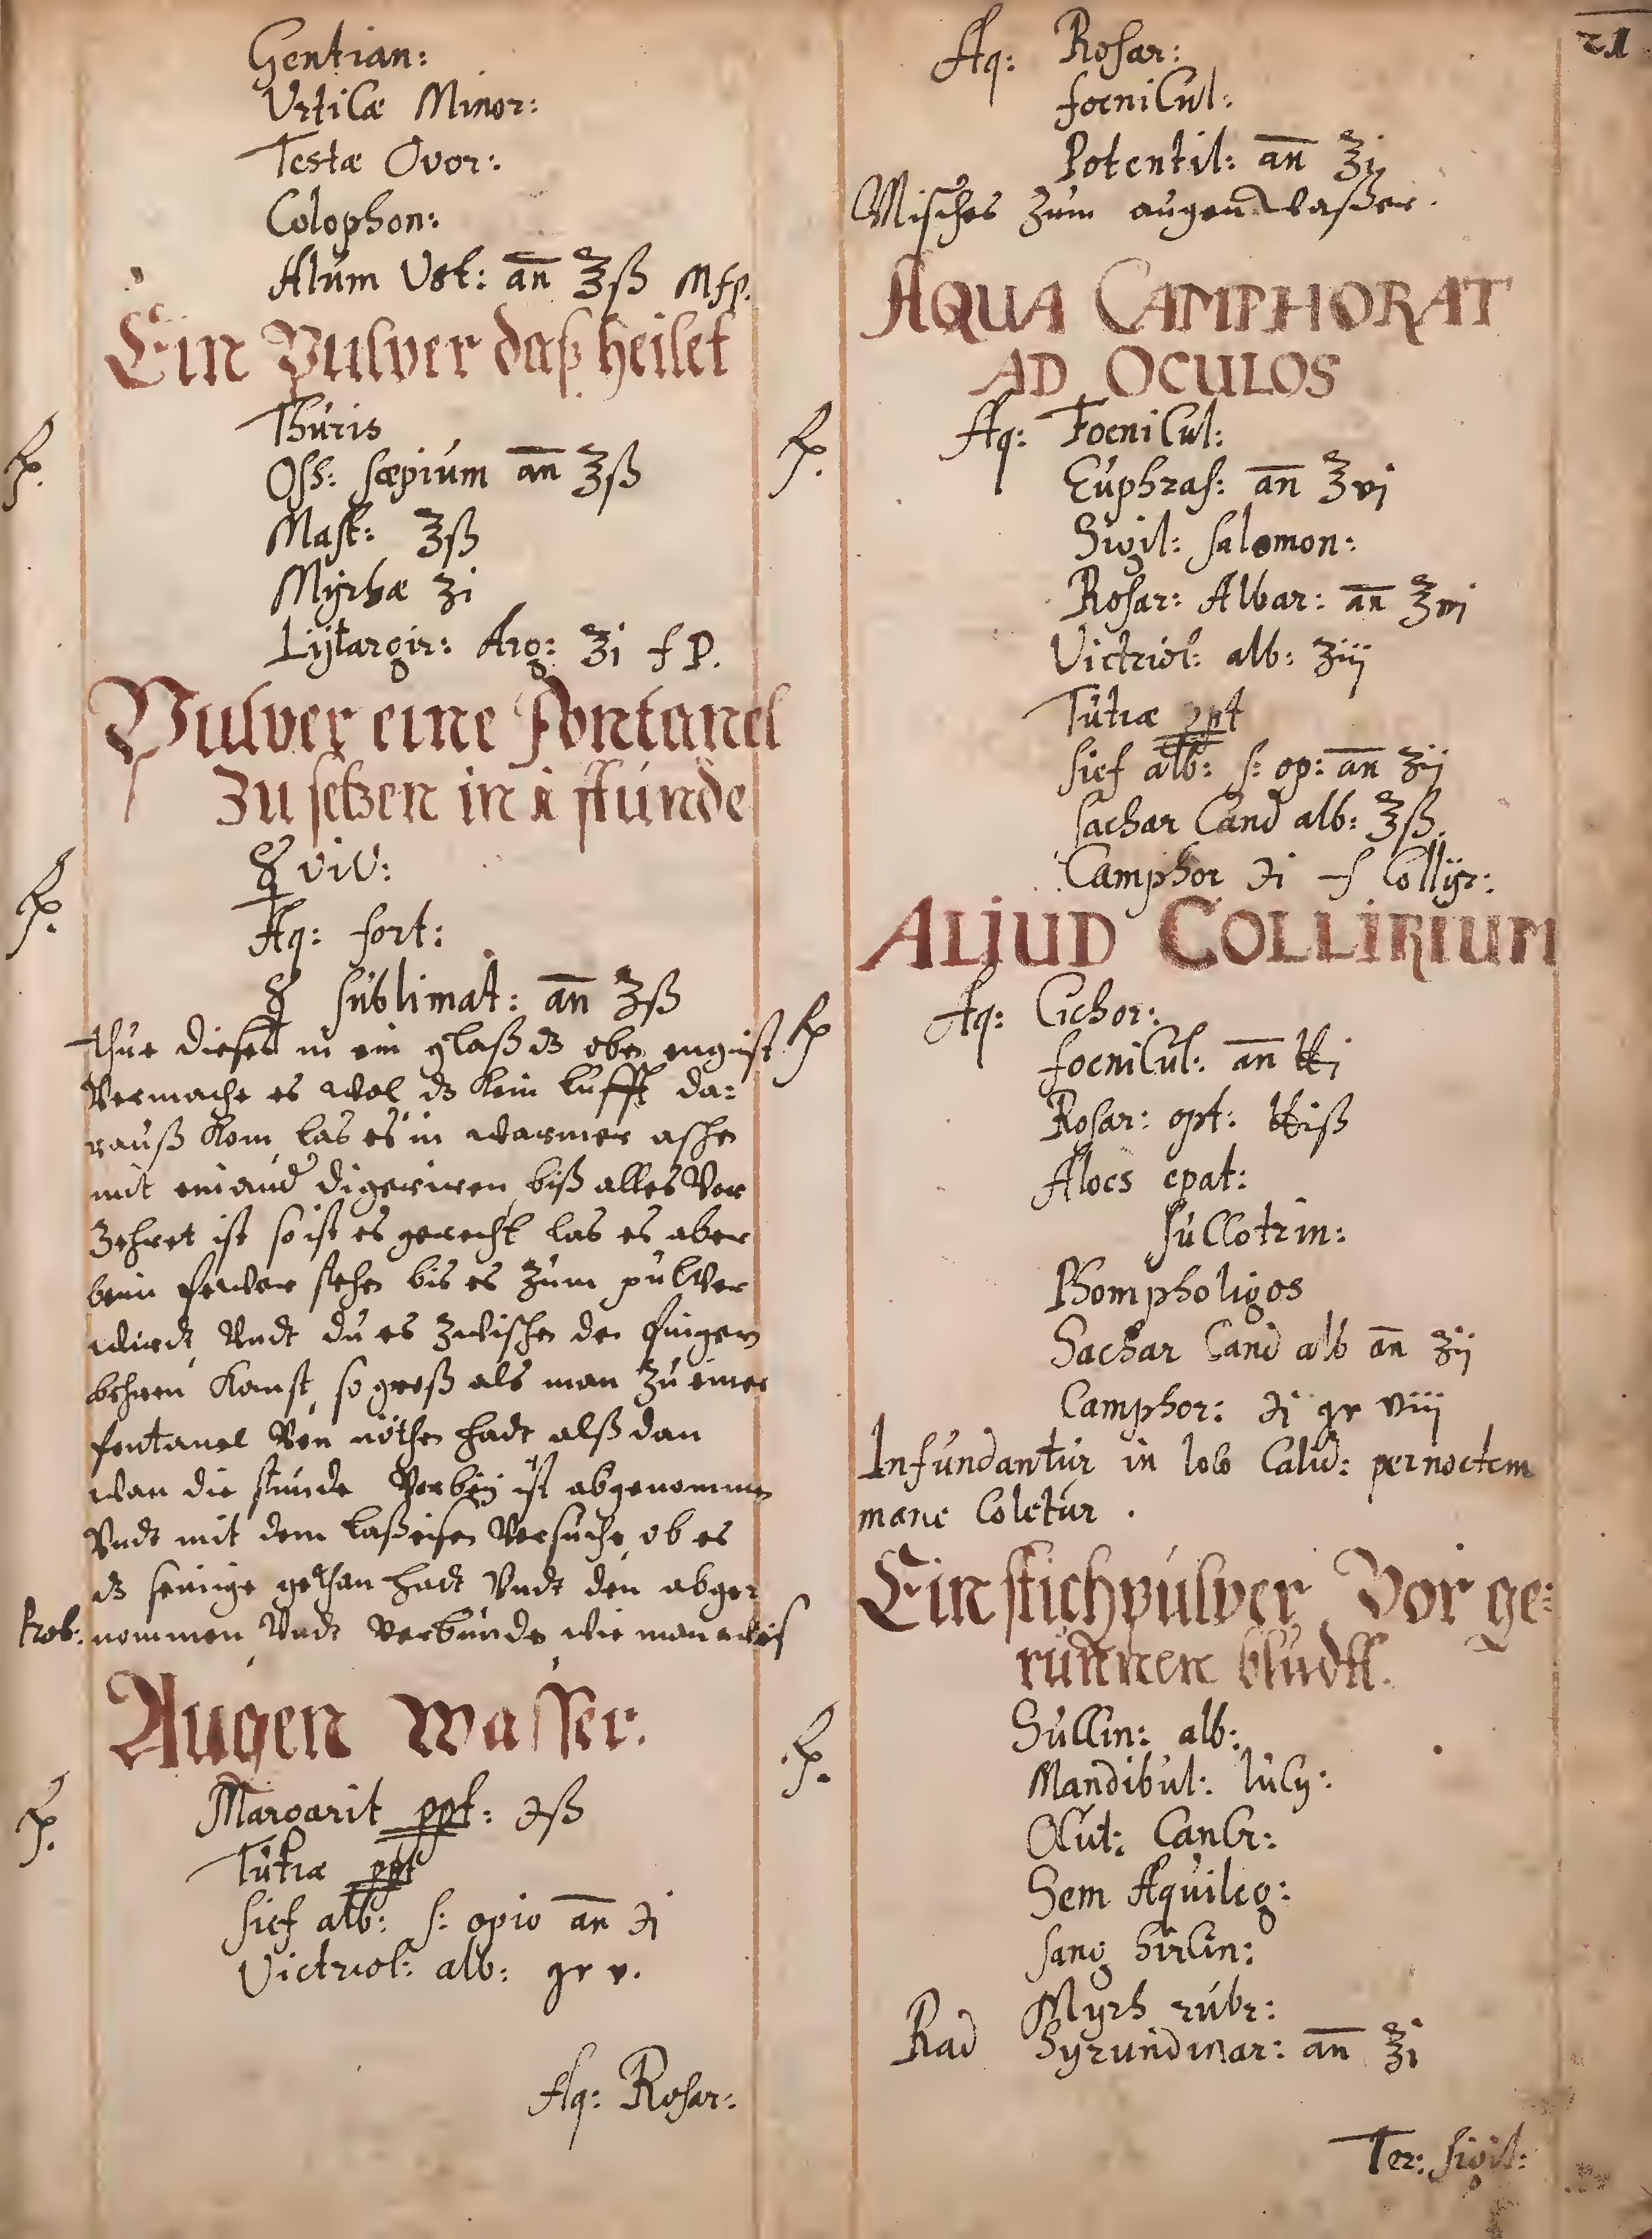 Gentian:
Urticæ Minor:
Testæ Ovor:
Colophon:
Alum Ust: an̄ ℥ß Mfp.
Ein Pulver daß heilet
Thuris
℞. Oss: sæpium an̄ ℥ß
Mast: ʒß
Myrhæ ʒi
Lijtargir: Arg: ʒi f P.
Pulver eine Fontanel
Zu setzen in i stunde
☿ viv:
℞. Aq: fort:
☿ sublimat: an̄ ʒß
Thue dieses in ein glaß dz oben eng ist
Vermache es wol dz kein lufft da:
rauß kom, las es in warmer aschen
mit einand digeriren, biß alles Ver
zehret ist so ist es gerecht las es aber
beim fewer stehen bis es zum pulver
wirdt, Undt du es zwischen den fingern
kanst, so groß als man zu einer
fontanel Von nöthen hadt alß dan
wan die stunde Vorbeÿ ist abgenommen
Undt mit dem laßeisen Versuche, ob es
dz seinige gethan hadt Undt den abge:
Prob: nommen, Undt Verbunden, wie man weis
Augen Wasser.
Margarit ppt: ℈ß
℞. Tutiæ ppt
sief alb: s: opio an̄ ℈i
Victriol: alb: gr v.
Aq: Rosar:
21
Aq: Rosar:
foenicul:
Potentil: an̄ ℥i
Misches zum augen Waßer.
AQUA CAMPHORAT
AD OCULOS
℞. Aq: Foenicul:
Euphras: an̄ ℥vj
Sigil: salomon:
Rosar: Albar: an̄ ℥iij
Victriol: alb: ʒiij
Tutiæ ppt
sief alb: s: op: an̄ ʒij
sachar Cand alb: ℥ß.
Camphor ℈i f Collÿr:
ALIUD COLLIRIUM
℞ Aq: Cichor:
foenicul: an̄ ℔j
Rosar: opt: ℔iß
Aloes epat:
succotrin:
Phompholigos
Sachar Cand alb an̄ ʒij
Camphor: ℈i gr viii
Infundantur in loco Calid: pernoctem
mane Coletur.
Ein stichpulver Vor ge:
runnen bludtt.
℞. Succin: alb:
Mandibul: lucÿ:
Ocul: Cancr:
Sem Aquileg:
sang hircin:
Myrh rubr:
Rad Hyrundinar: an̄ ℥i
Ter: sigil: